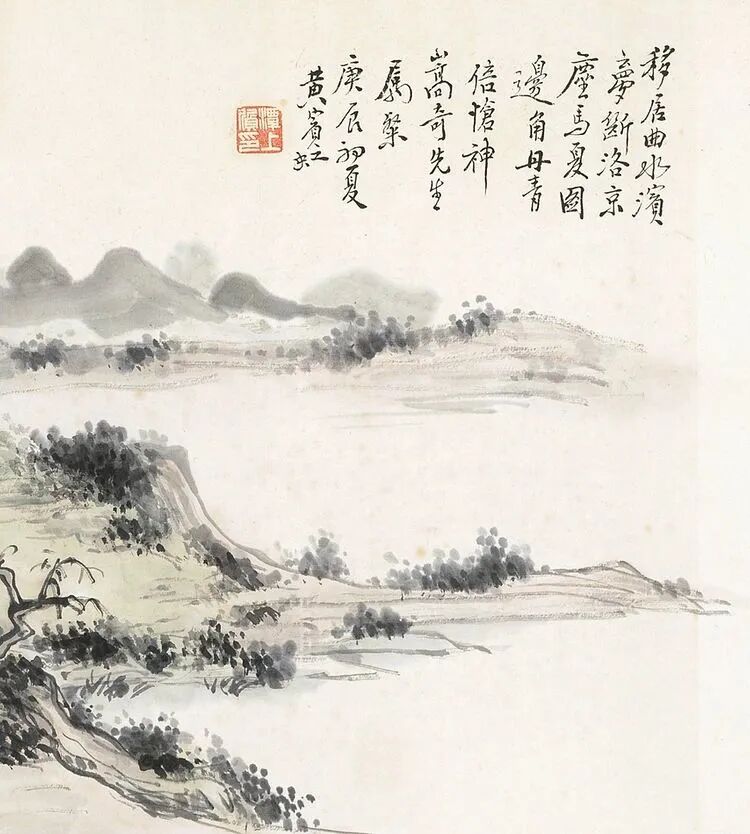 移居曲水濱
夢斷洛京
塵馬夏圖
邊角丹青
倍愴神
嵩奇先生
屬粲
庚辰初夏
黃賓虹
潭上質印